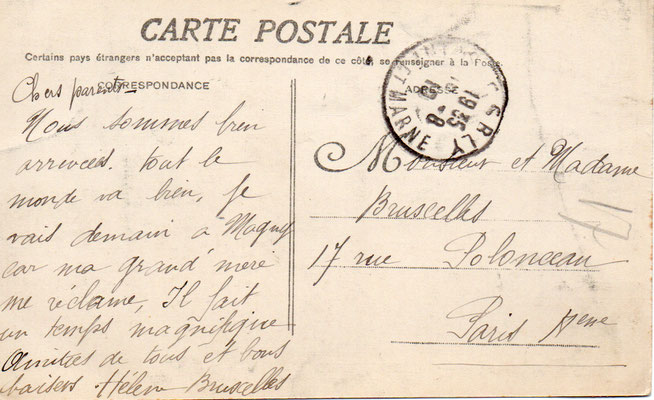 CARTE POSTALE
Certains pays étrangers n'acceptant pas la correspondance de ce côté, se renseigner à la Poste
CORRESPONDANCE
Chers parents
Nous sommes bien
arrivées. tout le
monde va bien, je
vais demain a Magny
car ma grand' mère
me réclame, Il fait
un temps magnifique
Amitiés de tous et bons
baisers Hélène Bruxelles
ADRESSE
ET MARNE
19 35
Monsieur et Madame
Bruxelles
17 rue Polonceau
Paris
17